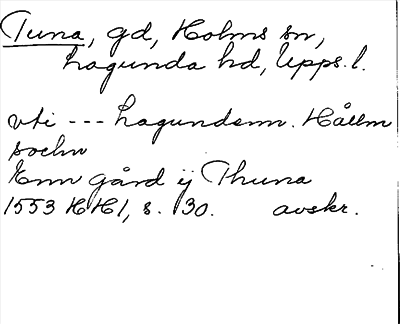 Tuna, gd, Holms sn,
Lagunda hd, Upps. l.
vti --- Lagundenn. Hållm
sochn
Enn gård ij Thuna
1553 HH1, s. 30. avskr.